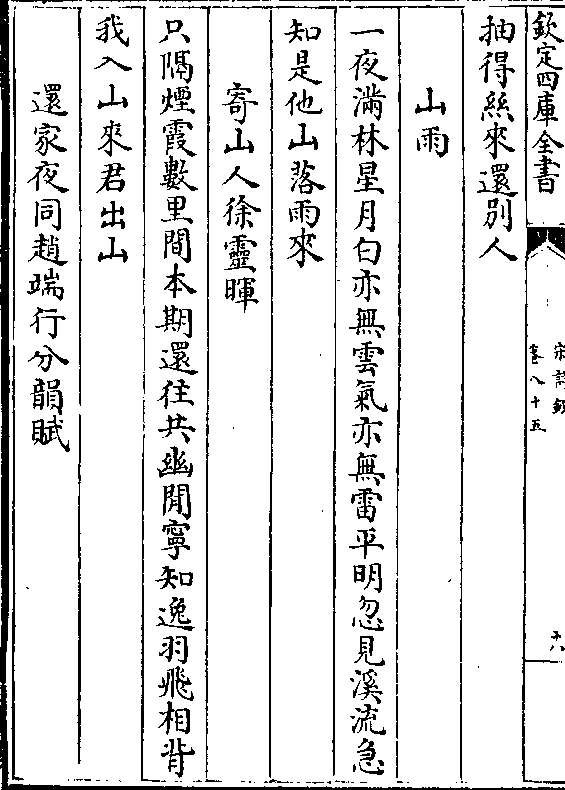 欽定四庫全書
宋詩鈔
卷八十五
十八
抽得絲來還別人
山雨
一夜滿林星月白亦無雲氣亦無雷平明忽見溪流急
知是他山落雨來
寄山人徐靈暉
只隔煙霞數里間本期還往共幽閒寧知逸羽飛相背
我入山來君出山
還家夜同趙端行分韻賦